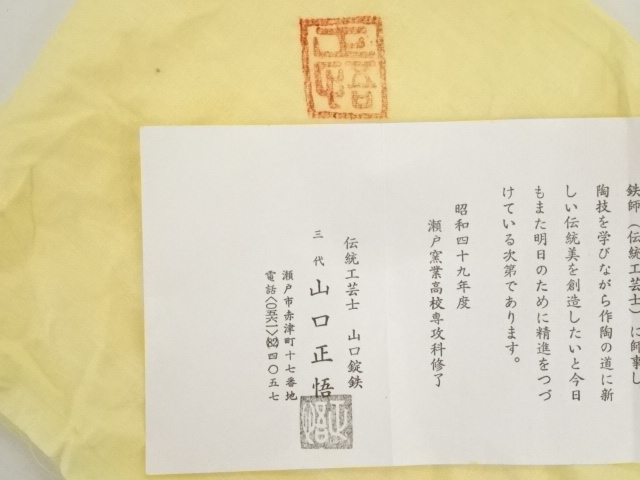 正悟
鉄師（伝統工芸士）に師事し
陶技を学びながら作陶の道に新
しい伝統美を創造したいと今日
もまた明日のために精進をつづ
けている次第であります。
昭和四十九年度
瀬戸窯業高校専攻科修了
伝統工芸士　山口錠鉄
三代　山口正悟
瀬戸市赤津町十七番地
電話〈〇五六一〉〈82〉四〇五七
正悟